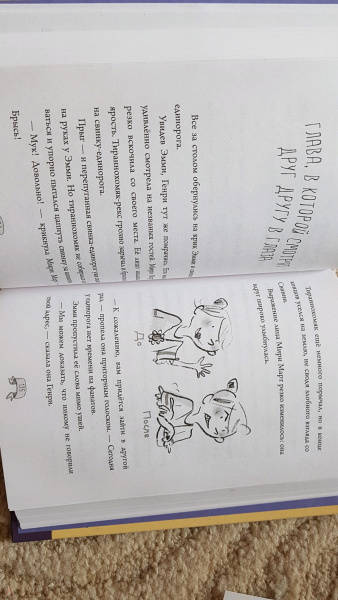 ГЛАВА, В КОТОРОЙ СМОТРЯТ
ДРУГ ДРУГУ В ГЛАЗА
Все за столом обернулись на крик
единорога.
Увидев Эмми, Генри тут же помрачнел.
удивлённо смотрела на незваных гостей.
резко вскочила со своего места. Её
ярость. Тираннохомяк-рекс грозно зарычал и
на свинку-единорога.
Прыг — и перепуганная свинка-единорог
на руках у Эмми. Но тираннохомяк не собирался
ваться и упорно пытался цапнуть свинку
— Мук! Довольно! — крикнула Мэри
Брысь!
Тираннохомяк ещё немного порычал, но в конце
уселся на землю, не сводя злобного взгляда со
свинки.
Выражение лица Мэри Март резко изменилось: она
вдруг широко улыбнулась.
До
После
— К сожалению, вам придётся зайти в другой
— пропела она приторным голоском. — Сегодня
у имперота нет времени на фанатов.
Эмми пропустила её слова мимо ушей.
— Мы можем доказать, что никому не говорили
твой адрес, — сказала она Генри.